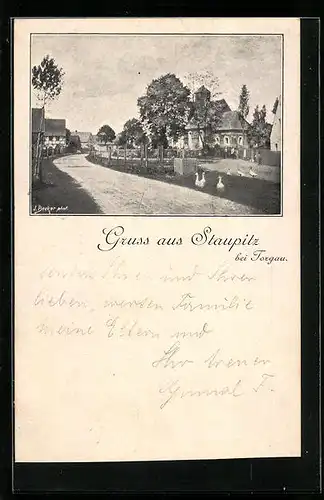 J. Becker phot.
Gruss aus Staupitz
bei Torgau.
senden Ihnen und Ihrer
lieben, werten Familie
meine Eltern und
Ihr treuer
F.